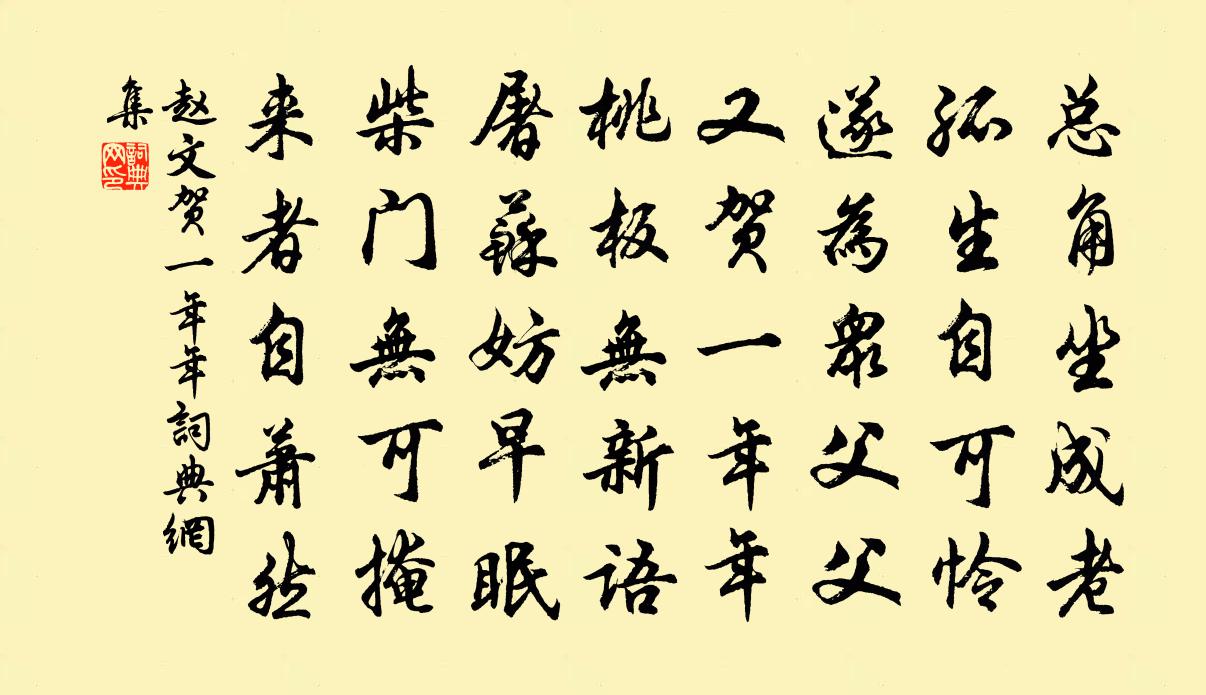 总角坐成老
孤生自可怜
遂為眾父父
又贺一年年
桃板無新语
屠蘇妨早眠
柴门無可掩
来者自萧然
赵文贺一年年詞典網
集
詞典
网印